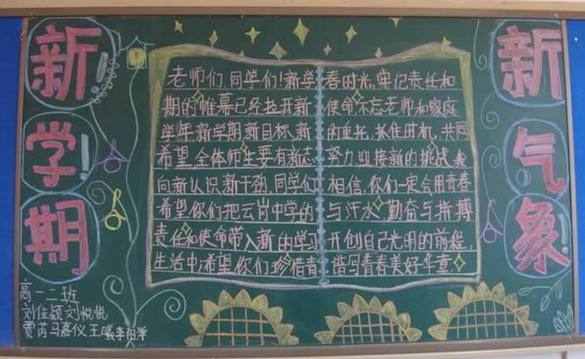 新学期
新气象
老师们、同学们!新学
期的帷幕已经拉开新
学年新学期新目标、新
希望.全体师生要有新志
向新认识新干劲.同学们
希望你们把云岗中学的
责任和使命带入新的学习
生活中.希望你们珍惜青
春时光,牢记责任和
使命.不忘老师和家庭
的重托.抓住时机,共同
努力迎接新的挑战
相信,你们一定会用青春
与汗水、勤奋与拼搏
开创自己光明的前程,
谱写青春美好华章
高一二班